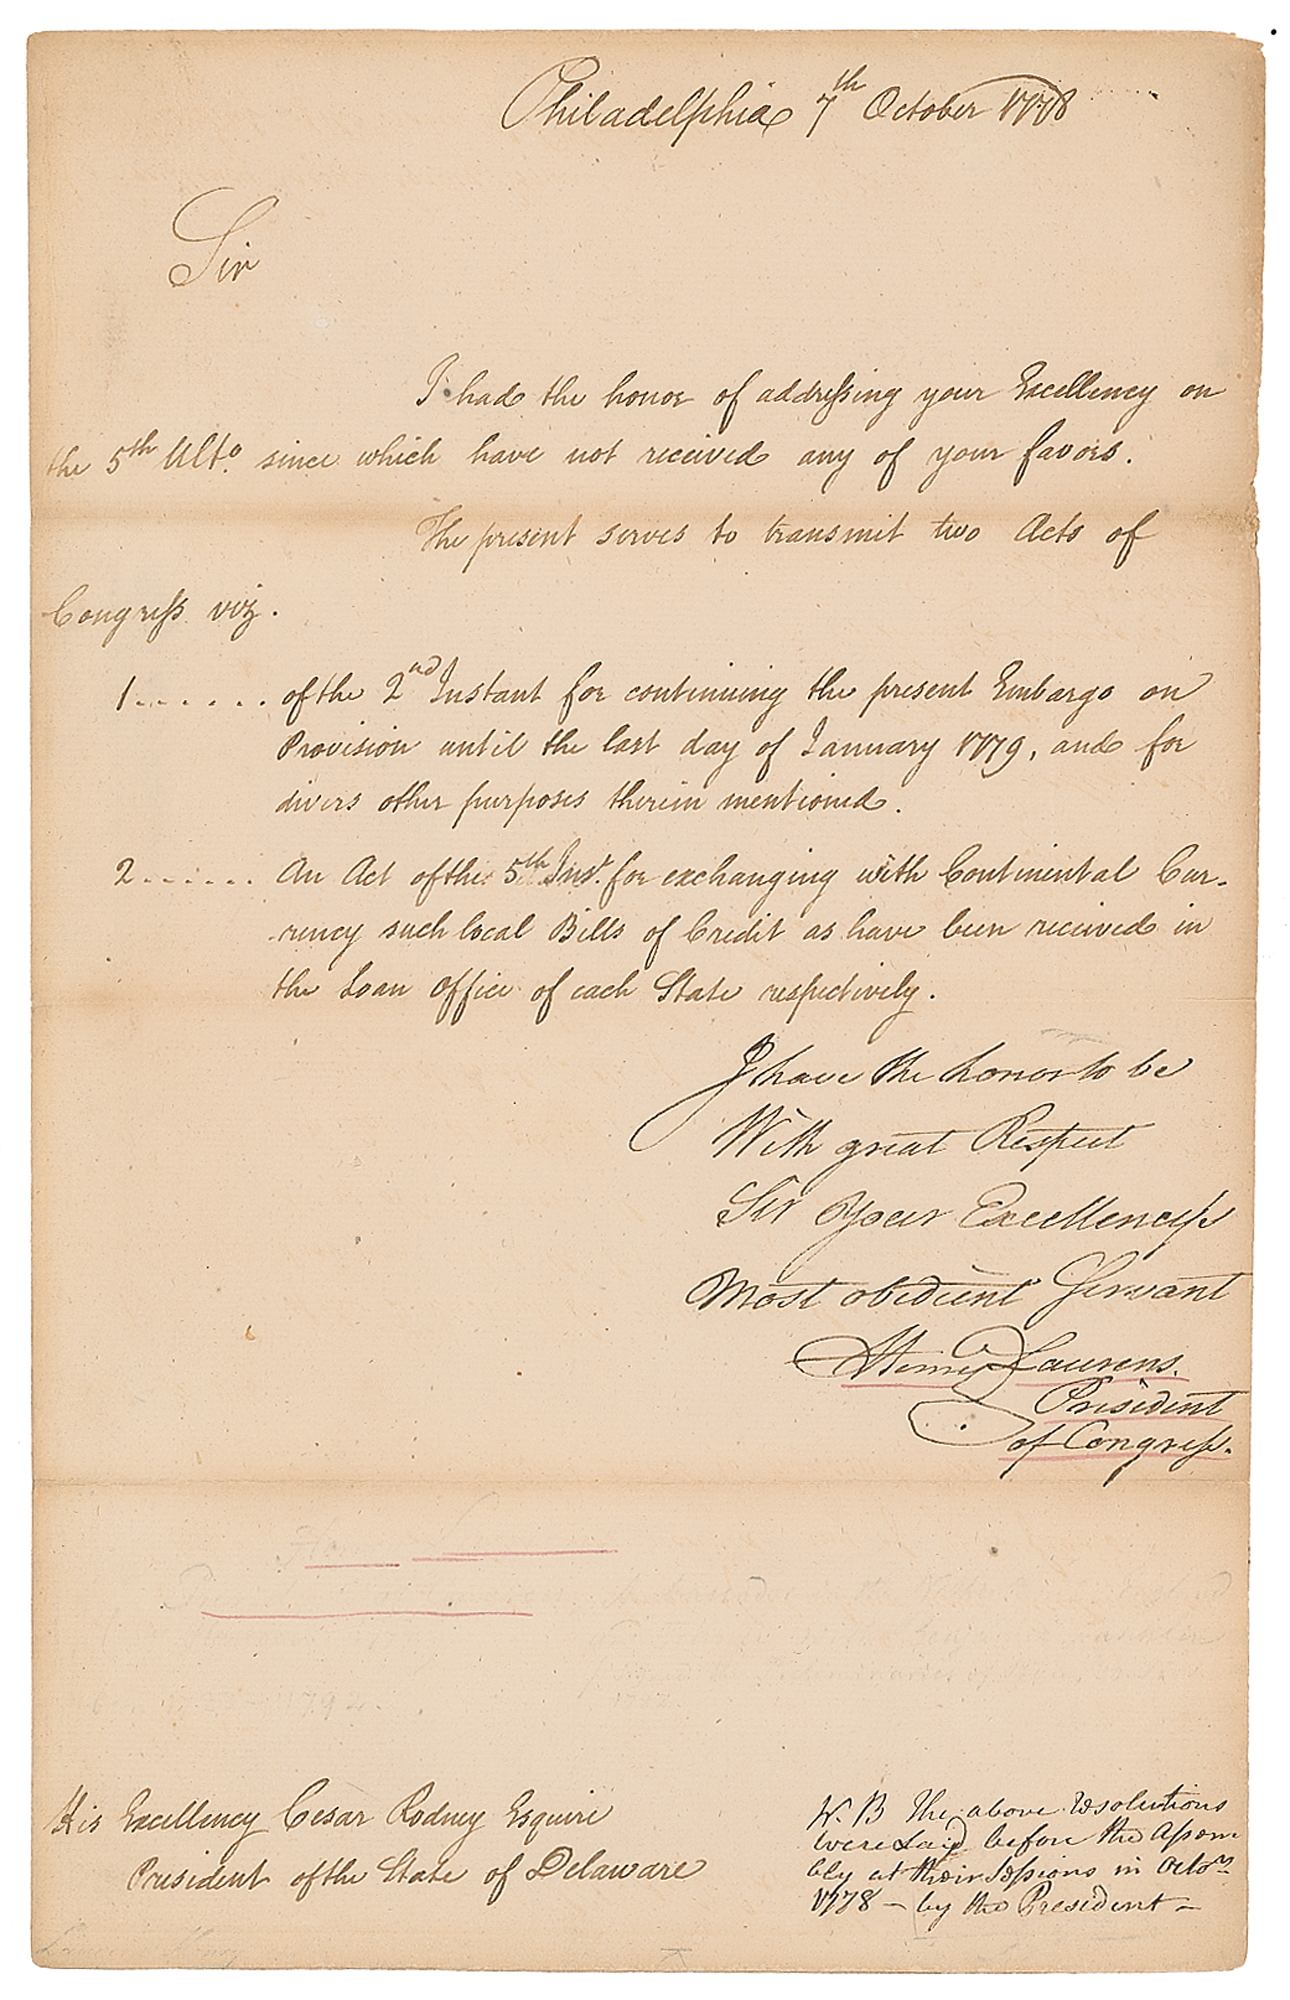 Philadelphia 7th October 1778
Sir
I had the honor of addressing your Excellency on
the 5th Ulto. since which have not received any of your favors.
The present serves to transmit two Acts of
Congress viz.
1....... of the 2nd Instant for continuing the present Embargo on
Provision until the last day of January 1779, and for
divers other purposes therein mentioned.
2...... An Act of the 5th Inst. for exchanging with Continental Cur-
rency such local Bills of Credit as have been received in
the Loan Office of each State respectively.
I have the honor to be
With great Respect
Sir Your Excellency's
Most obedient Servant
Henry Laurens.
President
of Congress.
1792.
His Excellency Cesar Rodney Esquire
President of the State of Delaware
N.B The above Resolutions
were Laid before the Assem
bly at their Sessions in Octor.
1778 - by the President -